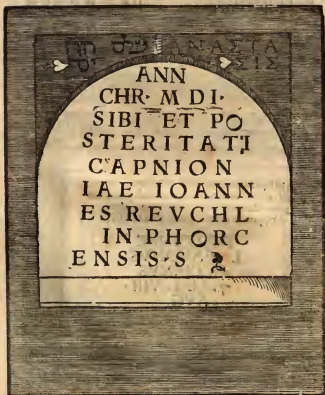 ΑΝΑΣΤΑ
ΣΙΣ
ANN
CHR· M DI·
SIBI ET PO
STERITATI
CAPNION
IAE IOANN
ES REVCHL
IN·PHORC
ENSIS·S·